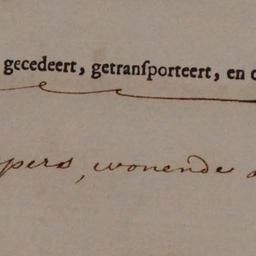 gecedeert, getranſporteert, en
pers, wonende